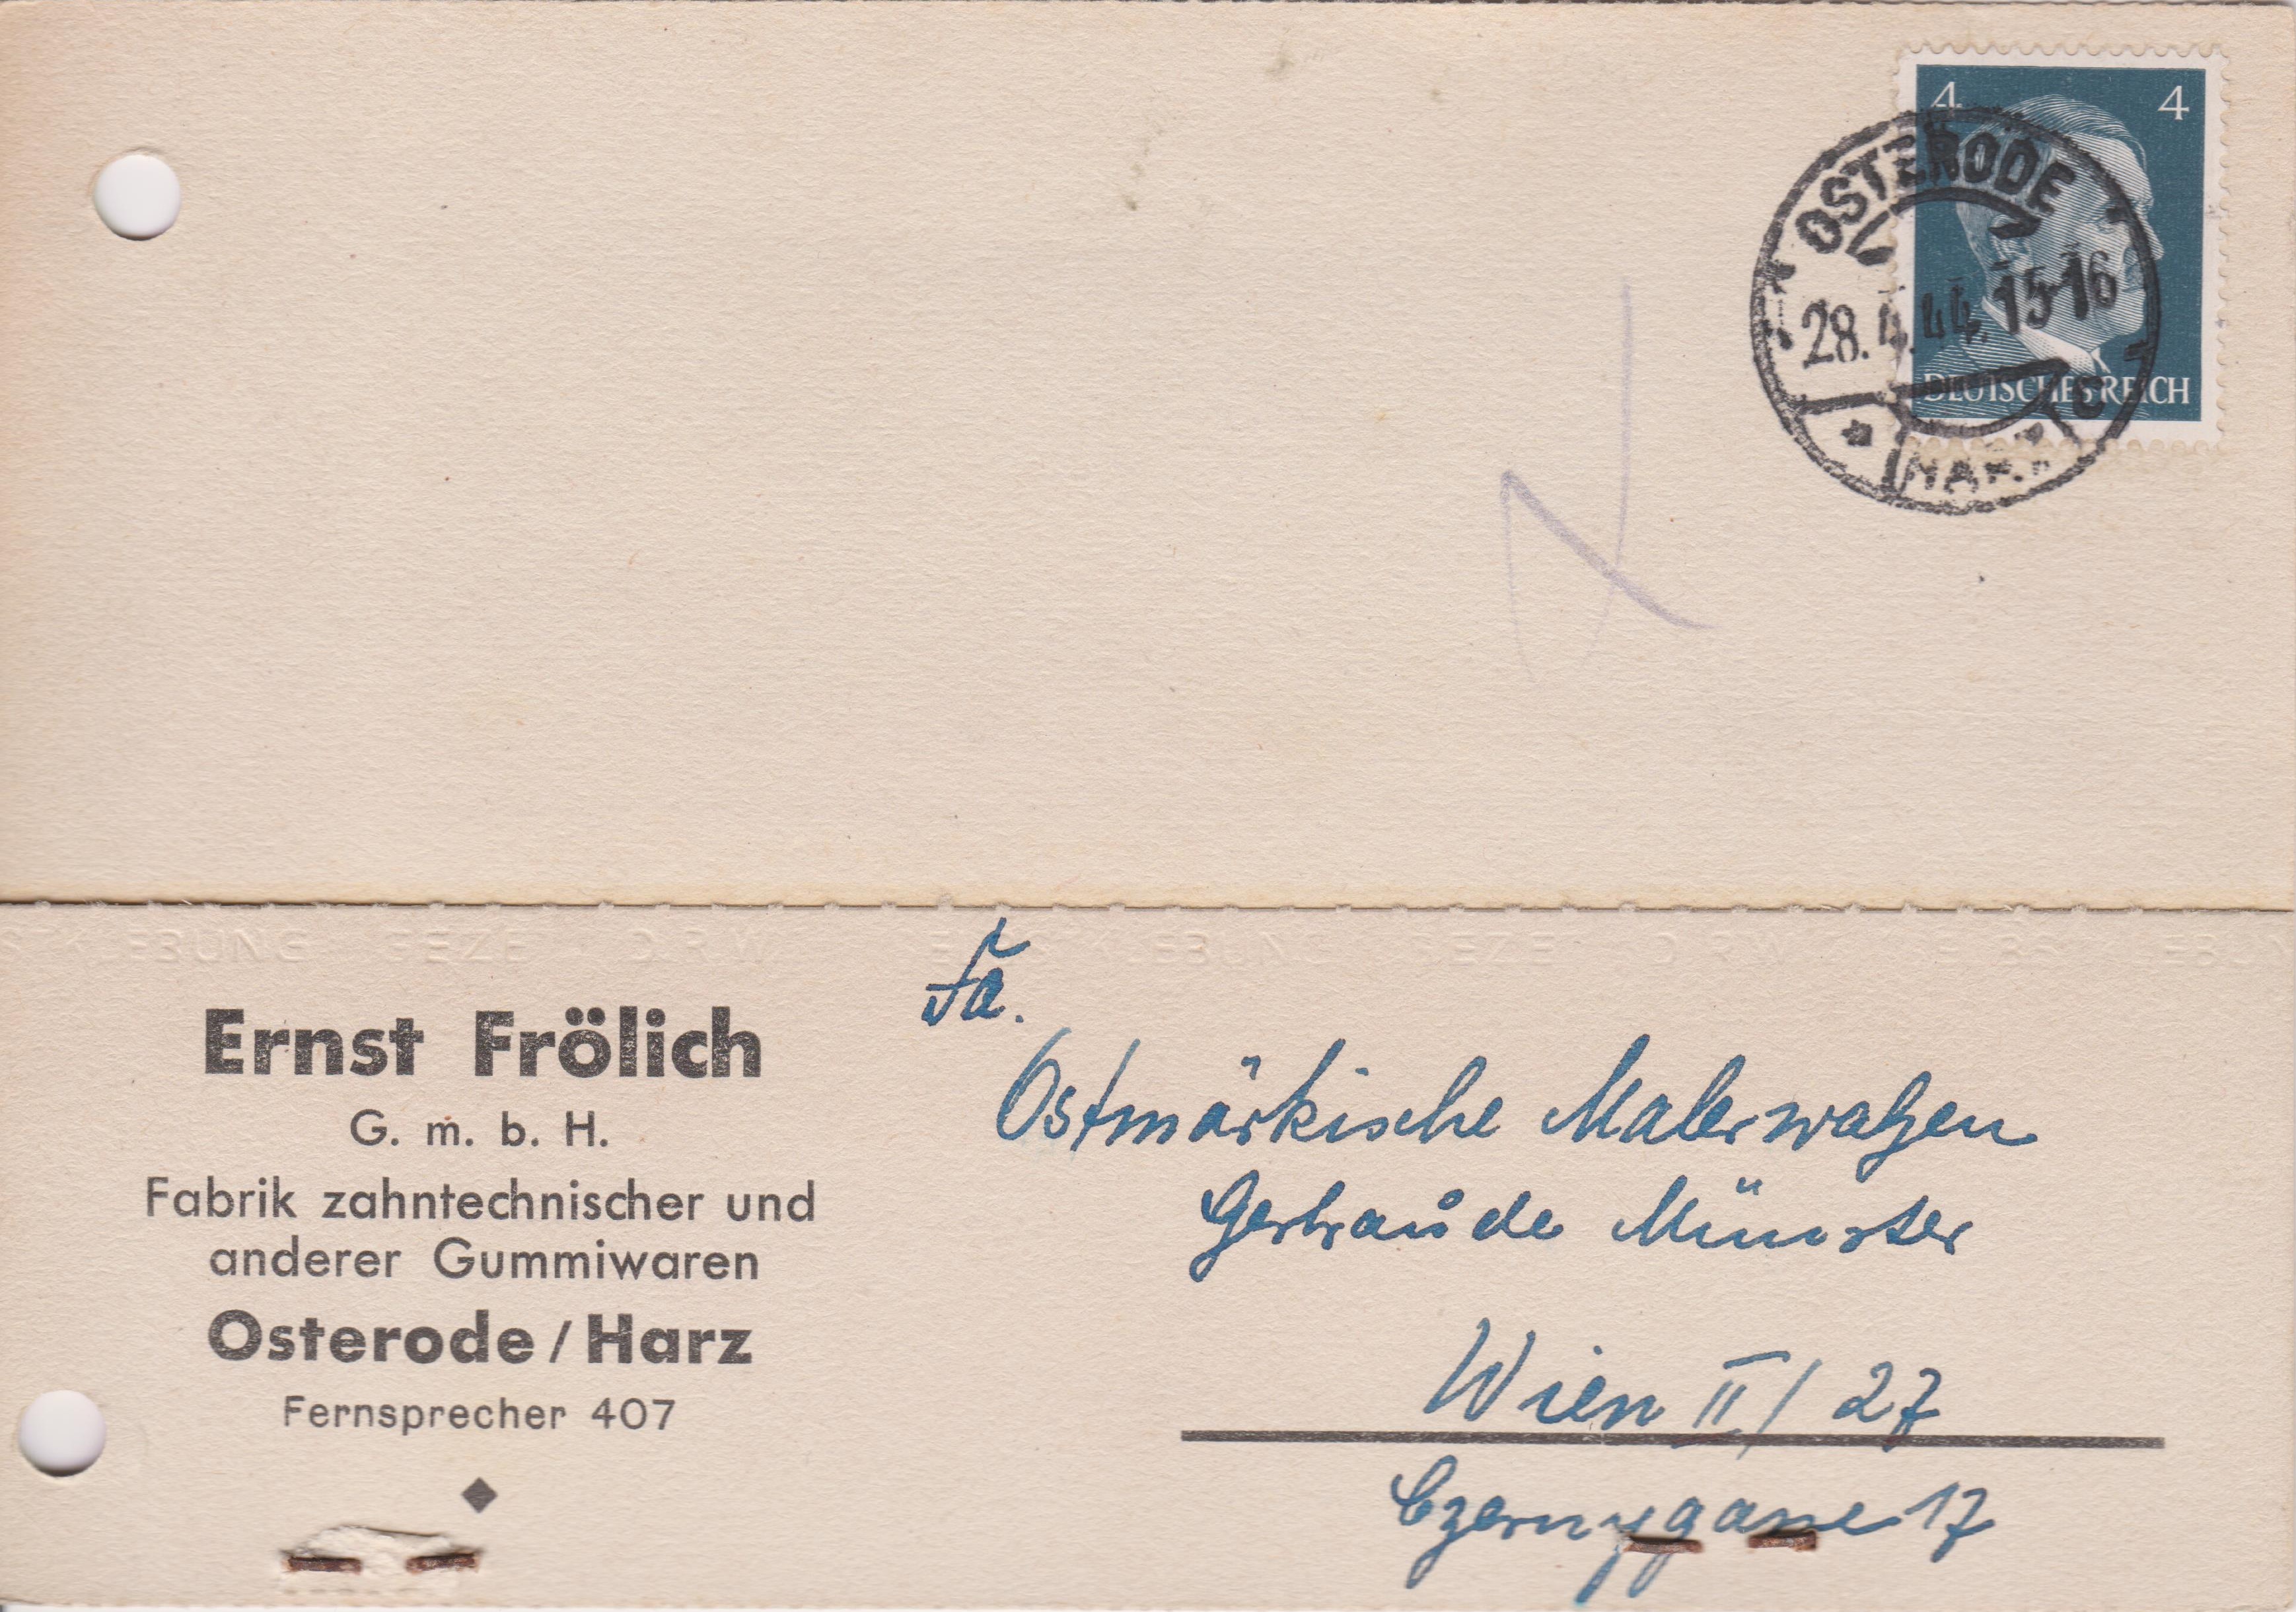 4 4
OSTERODE
28.4.44.15-16
DEUTSCHES REICH
Ernst Frölich
G. m. b. H.
Fabrik zahntechnischer und
anderer Gummiwaren
Osterode / Harz
Fernsprecher 407
Fa.
Ostmärkische Malerwalzen
Gertraude Münster
Wien II / 27
Czernygasse 17